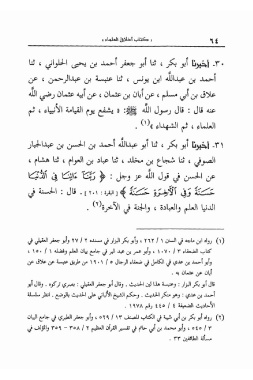 ٦٤ « كتاب أخلاق العلماء »
٣٠- أخبرنا أبو بكر ، ثنا أبو جعفر أحمد بن يحيى الحلواني ، ثنا
أحمد بن عبدالله ابن يونس ، ثنا عنبسة بن عبدالرحمن ، عن
علاق بن أبي مسلم ، عن أبان بن عثمان ، عن أبيه عثمان رضي الله
عنه قال : قال رسول الله ﷺ: « يشفع يوم القيامة الأنبياء ، ثم
العلماء ، ثم الشهداء »(١).
٣١- أخبرنا أبو بكر ، ثنا أبو عبدالله أحمد بن الحسن بن عبدالجبار
الصوفي ، ثنا شجاع بن مخلد ، ثنا عباد بن العوام ، ثنا هشام ،
عن الحسن في قول الله عز وجل : ﴿ رَبَّنَا ءَاتِنَا فِي الدُّنْيَا
حَسَنَةً وَفِي الْآخِرَةِ حَسَنَةً ﴾ [ البقرة : ٢٠١ ] . قال : الحسنة في
الدنيا العلم والعبادة ، والجنة في الآخرة(٢).
(١) رواه ابن ماجه في السنن ، وأبو بكر البزار في مسنده ، وأبو جعفر العقيلي في
كتاب الضعفاء ، وأبو عمر بن عبد البر في جامع بيان العلم وفضله ١ / ١٥٠ ،
وأبو أحمد بن عدي في الكامل في ضعفاء الرجال ٥ / ١٩٠١ من طريق عنبسة عن علاق عن
أبان عن عثمان به .
قال أبو بكر البزار : وعنبسة هذا لين الحديث . وقال أبو جعفر العقيلي : بصري تركوه . وقال أبو
أحمد بن عدي : وهو منكر الحديث . وحكم الشيخ الألباني على الحديث بالوضع . انظر سلسلة
الأحاديث الضعيفة ٤ / ٤٤٥ رقم ١٩٧٨ .
(٢) رواه أبو بكر بن أبي شيبة في الكتاب المصنف ١٣ / ٥٢٩ ، وأبو جعفر الطبري في جامع البيان
٣ / ٥٤٥ ، وأبو محمد بن أبي حاتم في تفسير القرآن العظيم ٢ / ٣٥٨ - ٣٥٩ والمؤلف في
مسألة الطائفين ٣٣ .